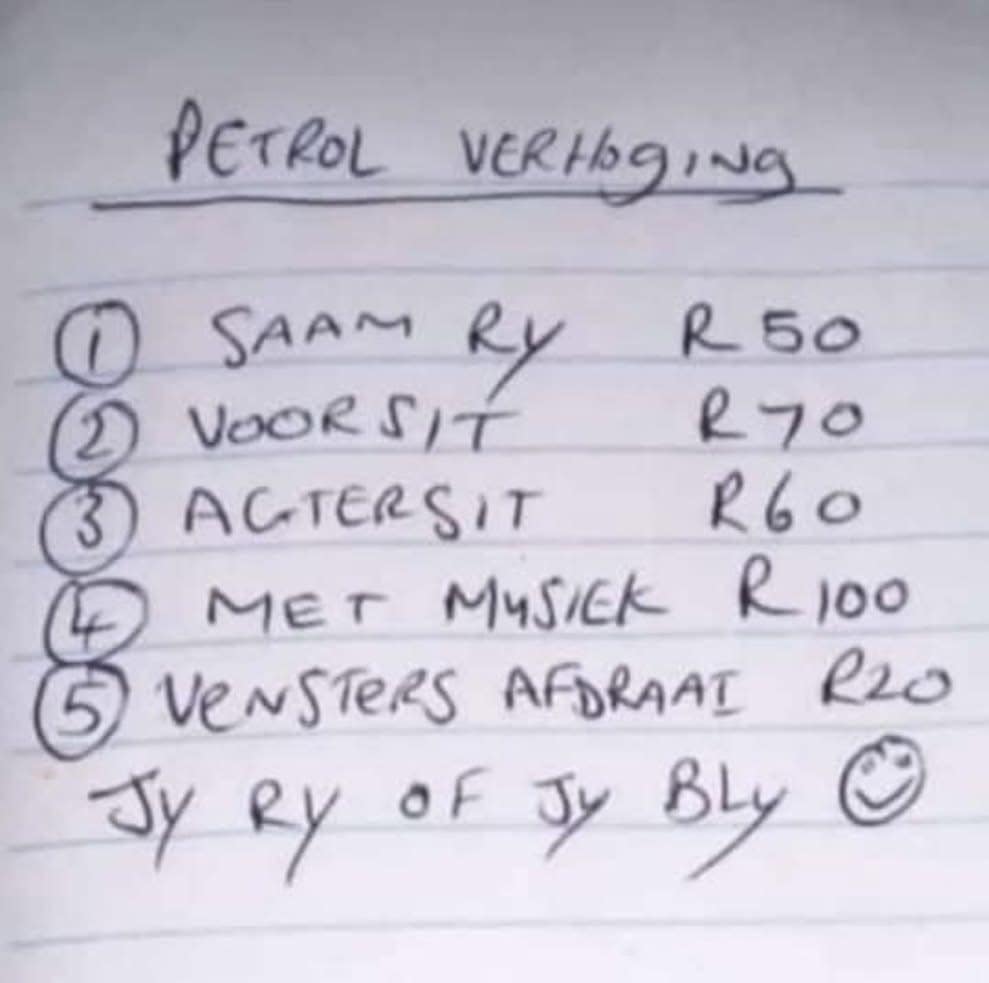 PETROL VERHOGING
1 SAAM RY R50
2 VOORSIT R70
3 AGTERSIT R60
4 MET MUSIEK R100
5 VENSTERS AFDRAAI R20
JY RY OF JY BLY